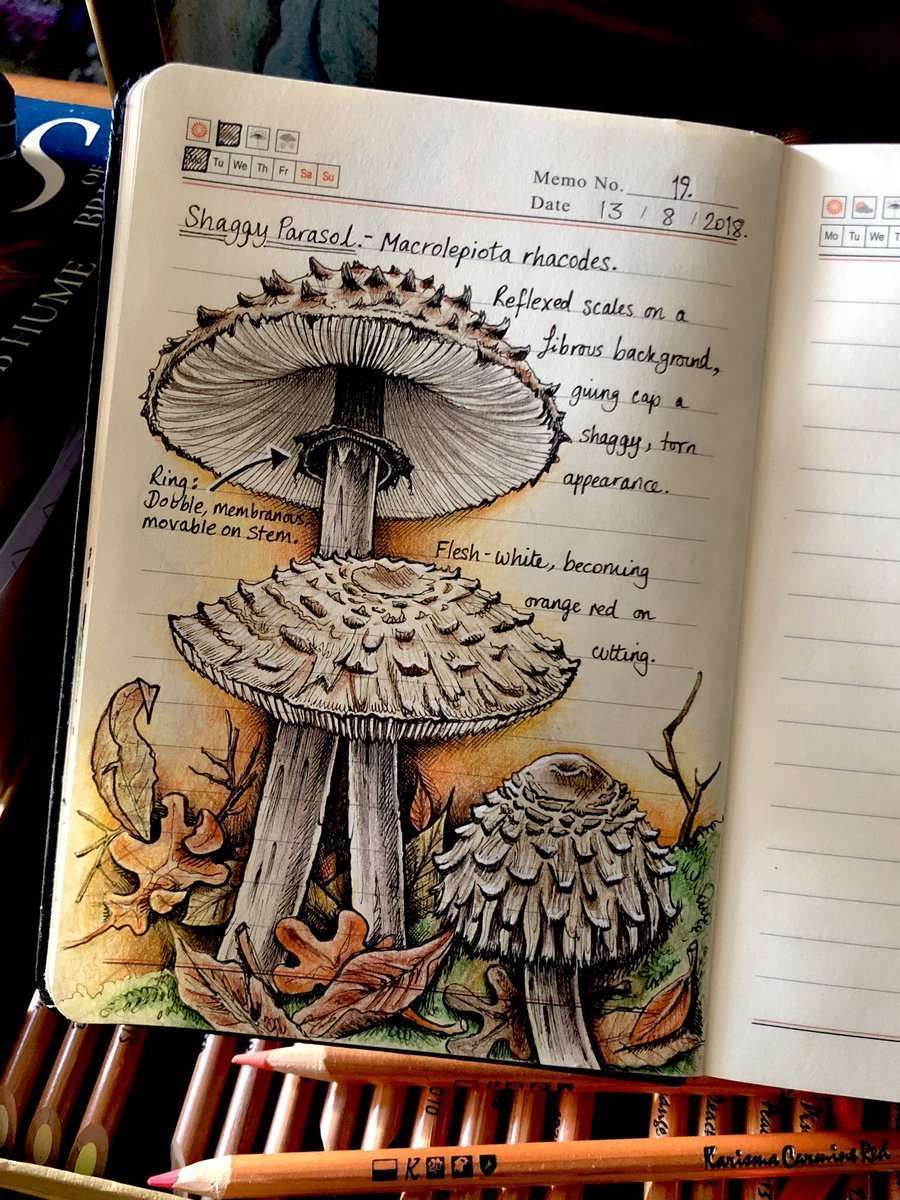 S
HUME
Mo Tu We Th Fr Sa Su
Memo No. 19.
Date 13 / 8 / 2018.
Shaggy Parasol. - Macrolepiota rhacodes.
Reflexed scales on a
fibrous background,
giving cap a
shaggy, torn
appearance.
Ring:
Dobble, membranous,
movable on Stem.
Flesh - white, becoming
orange red on
cutting.
Mo Tu We T
010
Karisma Carmine Red